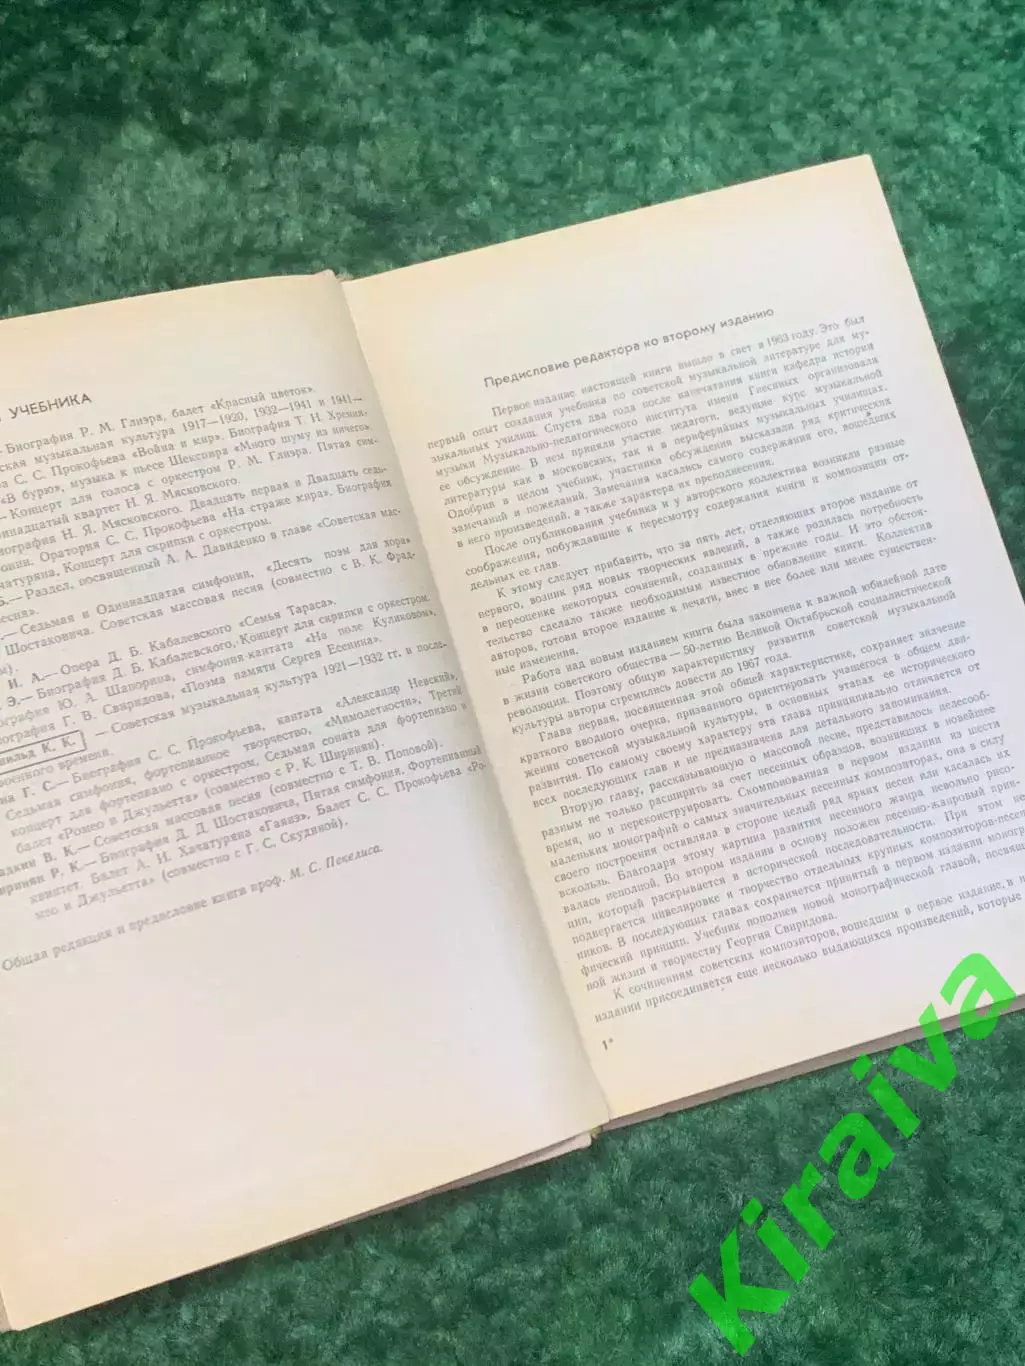 УЧЕБНИКА
Биография Р. М. Глиэра, балет «Красный цветок».
музыкальная культура 1917—1920, 1932—1941 и 1941—
С. С. Прокофьева «Война и мир». Биография Т. Н. Хренни-
«В бурю», музыка к пьесе Шекспира «Много шуму из ничего».
— Концерт для голоса с оркестром Р. М. Глиэра. Пятая сим-
Тринадцатый квартет Н. Я. Мясковского.
Биография Н. Я. Мясковского. Двадцать первая и Двадцать седь-
Оратория С. С. Прокофьева «На страже мира». Биография
Концерт для скрипки с оркестром.
— Раздел, посвященный А. А. Давиденко в главе «Советская мас-
песня».
— Седьмая и Одиннадцатая симфонии, «Десять поэм для хора»
Шостаковича. Советская массовая песня (совместно с В. К. Фрад-
И. А.— Опера Д. Б. Кабалевского «Семья Тараса».
Э.— Биография Д. Б. Кабалевского, Концерт для скрипки с оркестром.
Ю. А. Шапорина, симфония-кантата «На поле Куликовом».
Г. В. Свиридова, «Поэма памяти Сергея Есенина».
К. К. — Советская музыкальная культура 1921—1932 гг. и после-
военного времени.
Г. С.— Биография С. С. Прокофьева, кантата «Александр Невский»,
Седьмая симфония, фортепианное творчество, «Мимолетности», Третий
концерт для фортепиано с оркестром, Седьмая соната для фортепиано и
балет «Ромео и Джульетта» (совместно с Р. К. Ширинян).
В. К.— Советская массовая песня (совместно с Т. В. Поповой).
Р. К.— Биография Д. Д. Шостаковича, Пятая симфония, Фортепианный
квинтет. Балет А. И. Хачатуряна «Гаянэ», Балет С. С. Прокофьева «Ро-
мео и Джульетта» (совместно с Г. С. Скудиной).
Общая редакция и предисловие книги проф. М. С. Пекелиса.
Предисловие редактора ко второму изданию
Первое издание настоящей книги вышло в свет в 1963 году. Это был
первый опыт создания учебника по советской музыкальной литературе для му-
зыкальных училищ. Спустя два года после напечатания книги кафедра истории
музыки Музыкально-педагогического института имени Гнесиных организовала
ее обсуждение. В нем приняли участие педагоги, ведущие курс музыкальной
литературы как в московских, так и в периферийных музыкальных училищах.
Одобрив в целом учебник, участники обсуждения высказали ряд критических
замечаний и пожеланий. Замечания касались самого содержания его, вошедших
в него произведений, а также характера их преподнесения.
После опубликования учебника и у авторского коллектива возникли разные
соображения, побуждавшие к пересмотру содержания книги и композиции от-
дельных ее глав.
К этому следует прибавить, что за пять лет, отделяющих второе издание от
первого, возник ряд новых творческих явлений, а также родилась потребность
в переоценке некоторых сочинений, созданных в прежние годы. И это обстоя-
тельство сделало также необходимым известное обновление книги. Коллектив
авторов, готовя второе издание к печати, внес в нее более или менее существен-
ные изменения.
Работа над новым изданием книги была закончена к важной юбилейной дате
в жизни советского общества — 50-летию Великой Октябрьской социалистической
революции. Поэтому общую характеристику развития советской музыкальной
культуры авторы стремились довести до 1967 года.
Глава первая, посвященная этой общей характеристике, сохраняет значение
краткого вводного очерка, призванного ориентировать учащегося в общем дви-
жении советской музыкальной культуры, в основных этапах ее исторического
развития. По самому своему характеру эта глава принципиально отличается от
всех последующих глав и не предназначена для детального запоминания.
Вторую главу, рассказывающую о массовой песне, представилось целесооб-
разным не только расширить за счет песенных образцов, возникших в новейшее
время, но и переконструировать. Скомпонованная в первом издании из шести
маленьких монографий о самых значительных песенных композиторах, она в силу
своего построения оставляла в стороне целый ряд ярких песен или касалась их
вскользь. Благодаря этому картина развития песенного жанра невольно рисо-
валась неполной. Во втором издании в основу положен песенно-жанровый прин-
цип, который раскрывается в исторической последовательности. При этом не
подвергается нивелировке и творчество отдельных крупных композиторов-песен-
ников. В последующих главах сохраняется принятый в первом издании моногра-
фический принцип. Учебник пополнен новой монографической главой, посвящен-
ной жизни и творчеству Георгия Свиридова.
К сочинениям советских композиторов, вошедшим в первое издание, в
издании присоединяется еще несколько выдающихся произведений, которые
1*
Kiraiva